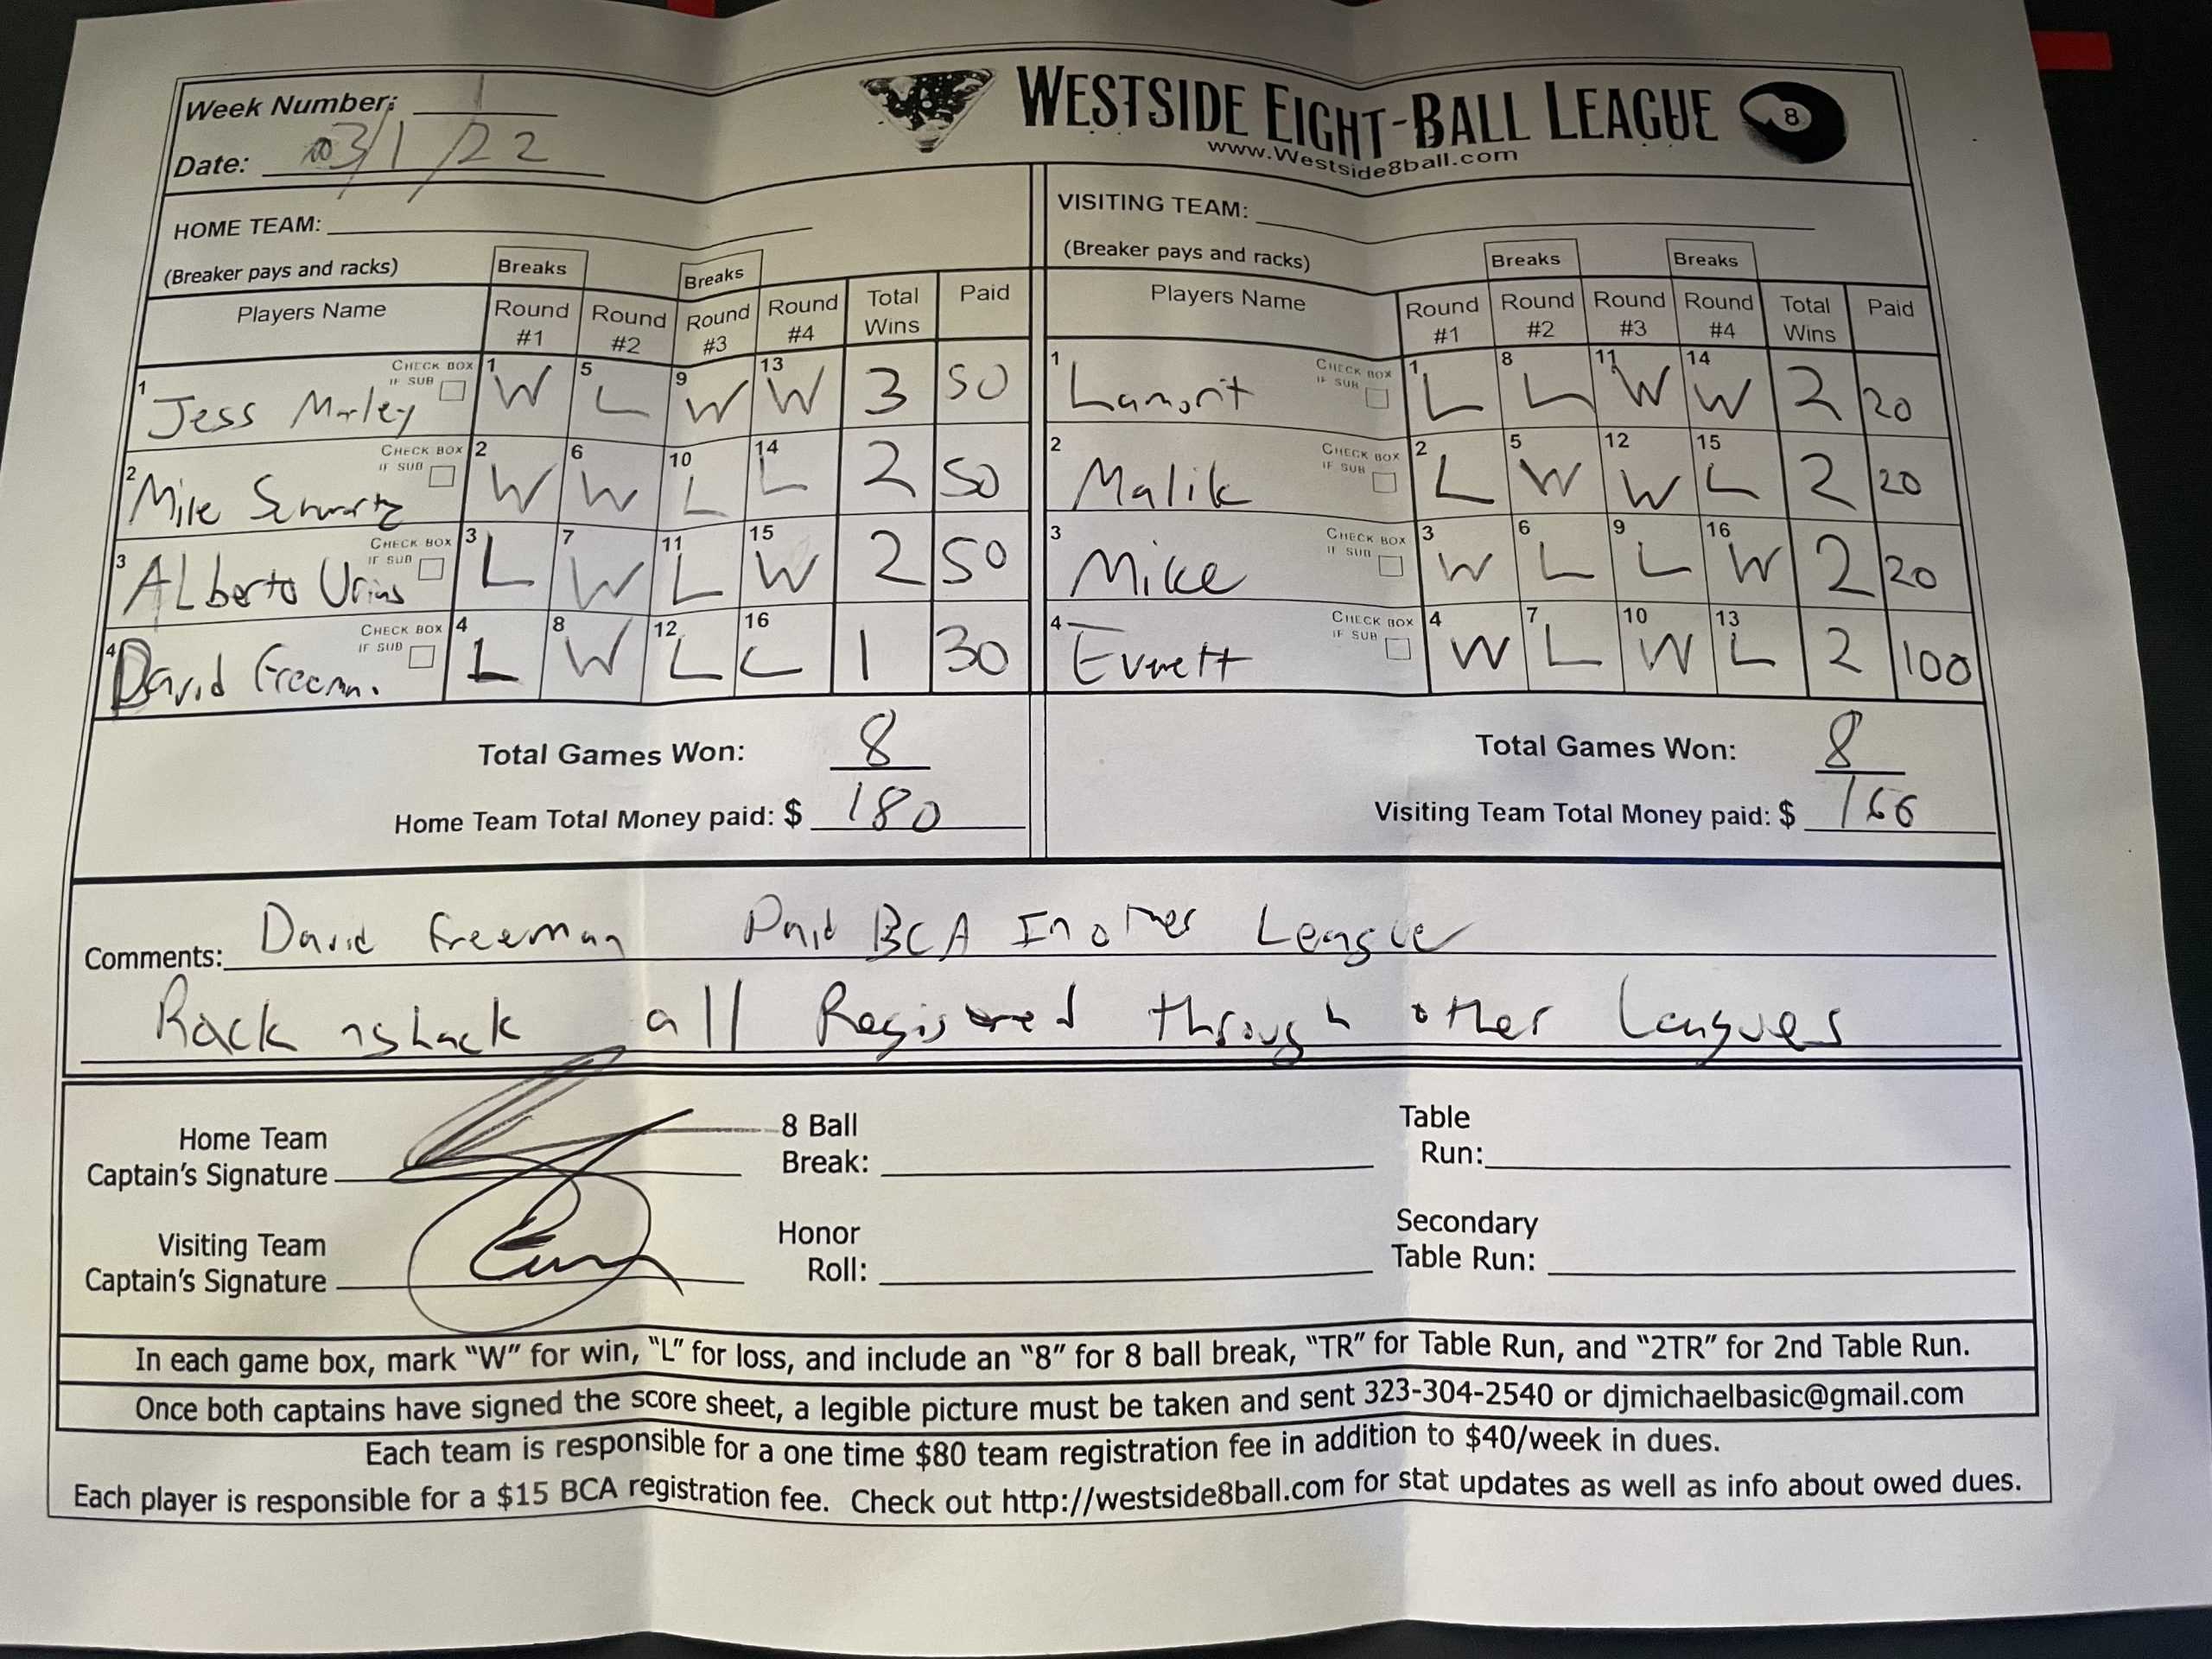 Week Number: 1
WESTSIDE EIGHT-BALL LEAGUE 8
www.Westside8ball.com
Date: 03/1/22
HOME TEAM:
(Breaker pays and racks)
Breaks Breaks
Players Name Round #1 Round #2 Round #3 Round #4 Total Wins Paid
1 Jess Marley CHECK BOX IF SUB 1 W 5 L 9 W 13 W 3 50
2 Mike Schwartz CHECK BOX IF SUB 2 W 6 W 10 L 14 L 2 50
3 ALberto Urias CHECK BOX IF SUB 3 L 7 W 11 L 15 W 2 50
4 David Freeman. CHECK BOX IF SUB 4 L 8 W 12 L 16 L 1 30
Total Games Won: 8
Home Team Total Money paid: $ 180
VISITING TEAM:
(Breaker pays and racks)
Breaks Breaks
Players Name Round #1 Round #2 Round #3 Round #4 Total Wins Paid
1 Lamont CHECK BOX IF SUB 1 L 8 L 11 W 14 W 2 20
2 Malik CHECK BOX IF SUB 2 L 5 W 12 W 15 L 2 20
3 Mike CHECK BOX IF SUB 3 W 6 L 9 L 16 W 2 20
4 Everett CHECK BOX IF SUB 4 W 7 L 10 W 13 L 2 100
Total Games Won: 8
Visiting Team Total Money paid: $
Comments: David Freeman Paid BCA In other League
Rack nshack all Registered through other Leagues
Home Team
Captain's Signature
8 Ball
Break:
Table
Run:
Visiting Team
Captain's Signature
Honor
Roll:
Secondary
Table Run:
In each game box, mark "W" for win, "L" for loss, and include an "8" for 8 ball break, "TR" for Table Run, and "2TR" for 2nd Table Run.
Once both captains have signed the score sheet, a legible picture must be taken and sent 323-304-2540 or djmichaelbasic@gmail.com
Each team is responsible for a one time $80 team registration fee in addition to $40/week in dues.
Each player is responsible for a $15 BCA registration fee. Check out http://westside8ball.com for stat updates as well as info about owed dues.